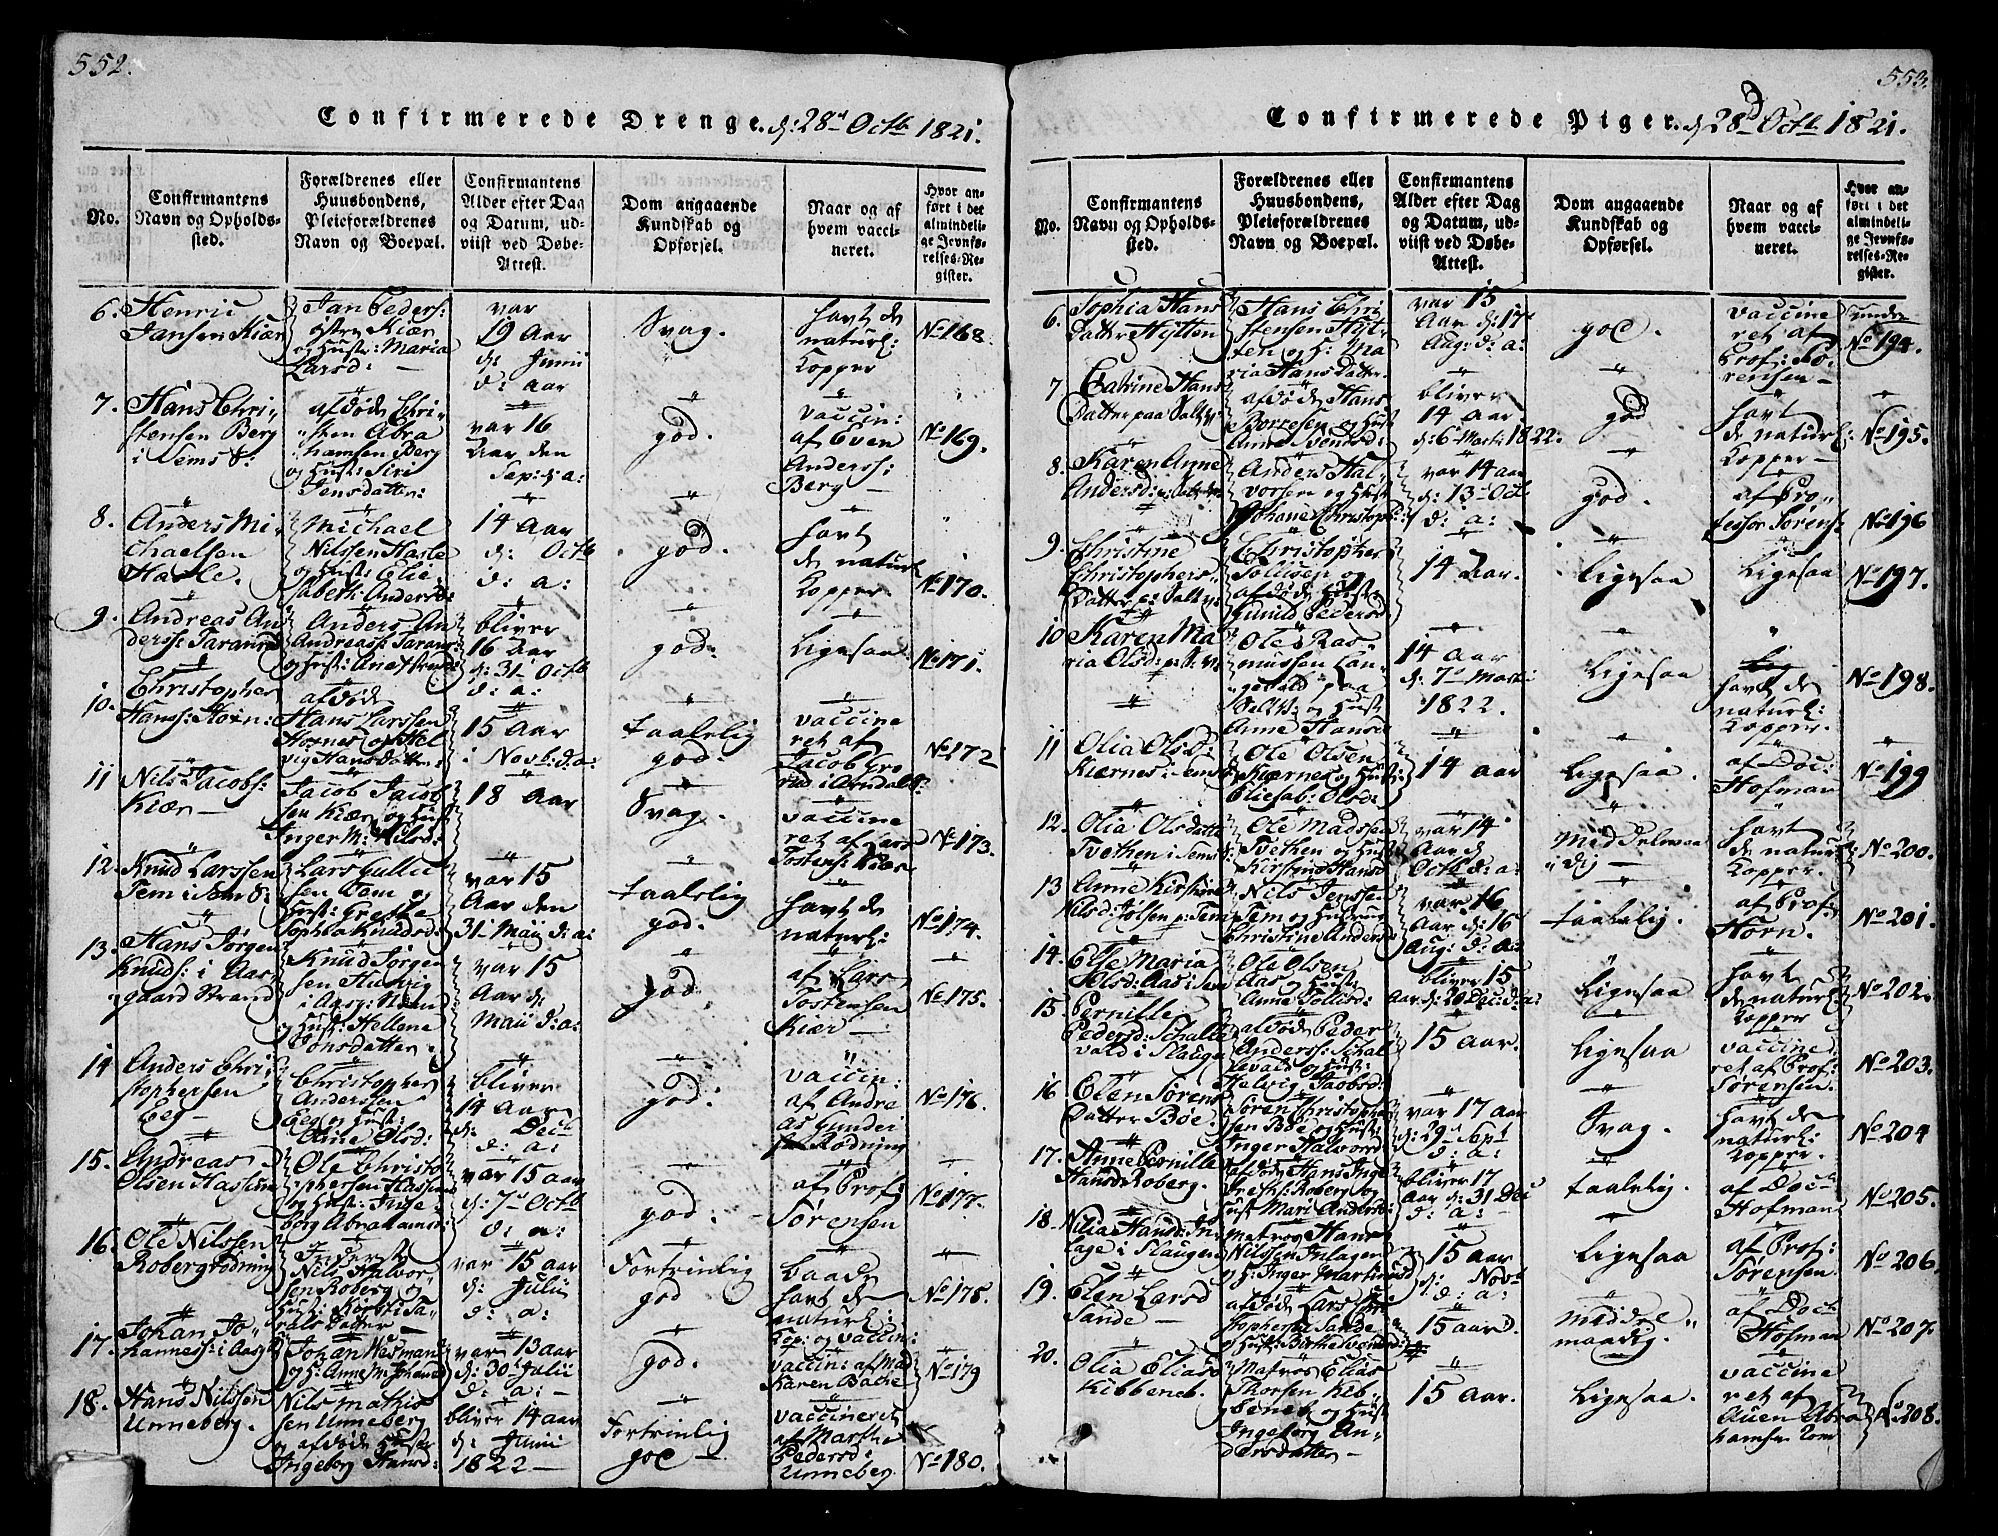 552.
Confirmerede Drenge. d: 28d Octb 1821.
No.
Confirmantens
Navn og Opholds-
sted.
Forældrenes eller
Huusbondens,
Pleieforældrenes
Navn og Boepæl.
Confirmantens
Alder efter Dag
og Datum, ud-
viist ved Døbe-
Attest.
Dom angaaende
Kundskab og
Opførsel.
Naar og af
hvem vacci-
neret.
Hvor an-
ført i det
almindeli-
ge Jevnfø-
relses-Re-
gister.
6. Henric
Jansen Kiær
Jan Peders:
østre Kiær
og Hust: Maria
Larsd: —
var
19 Aar
d: Junii
d: aar
Svag.
havt de
naturl:
Kopper
No 168.
7. Hans Chri-
stensen Berg
i Sems S:
afdøde Chri-
sten Abra
hamsen Berg
og Hust: Siri
Jensdatter:
var 16
Aar den
Sep: d: a:
god.
vaccin:
af Even
Anderss:
Berg —
No 169.
8. Anders Mi-
chaelsen
Hasle.
Michael
Nilssen Hasle
og Hust: Elie-
sabeth Andersd:
14 Aar
d: Octb
d: a:
god.
havt
de naturl
Kopper
No 170.
9. Andreas An
derss: Tarann
Anders An
Andreass: Taran
og Hust: Ane
bliver
16 Aar
d: 31 Octb
d: a:
god:
Ligesaa
No 171.
10. Christopher
Hanss: Horn:
afdøde
Hans Larssen
Hornes og Hel
vig Hans Datter:
15 Aar
i Novb: d: a:
taalelig
god:
vaccine
ret af
Jacob Gro
i Arndals S:
No 172
11 Nils Jacobs:
Kiær —
Jacob Jacob
sen Kiær og Hust
Inger M: Nilsd:
18 Aar
Svag.
vaccine
ret af Lars
Tostens: Kiær
No 173.
12. Knud Larssen
Tem i Sem S:
Lars Gullic
sen Tem og
Hust: Grethe
Sophia Knudsd:
var 15
Aar den
31 Maii d: a:
taalelig
god:
havt de
naturl:
No 174.
13. Hans Jørgen
Knuds: i Aas-
gaard Strand
Knud Jørgen
sen
i Aasg:
og Hust: Hellene
Tonsdatter.
var 15
Aar d:
Maii d: a:
god
af Lars
Tostensen
Kiær —
No 175.
14 Anders Chri
stophersen
Eeg —
Christopher
Andersen
Eeg og Hust:
Ane Olsd:
bliver
14 Aar
d: Decb
d: a:
god:
vaccin:
af Andre
as Gunder
Rødning
No 176.
15. Andreas
Olsen Hassum
Ole Christo
phersen Hassum
og Hust: Inge
borg Abrahamsd:
var 15 aar
d: 7d Octb
d: a:
god.
af Prof:
Sørensen
No 177.
16. Ole Nilssen
Roberg rødning
Inderst
Nils Halvor-
sen Roberg og
Hust: Kirsti Ta-
ralsdatter —
var 15 aar
d: Julii
d: a:
Fortrinlig
god
baade
havt de
naturl:
Kop: og vaccin:
No 178.
17. Johan Jo-
hanness: i Aasg:
Johan Wesman
og H: Anne M: Johannes
var 13 aar
d: 30 Julii
d: a: —
god.
vaccin: af Mad
Karen Bache
No 179
18. Hans Nilssen
Unneberg.
Nils Mathis
sen Unneberg
og afdøde Hustr
Ingeborg Hansd:
bliver 14 aar
d: Junii
1822 —
Fortrinlig
god —
vaccineret
af Marthe
Pedersd:
Unneberg
No 180.
553.
Confirmerede Piger. d 28d Octb 1821.
No.
Confirmantens
Navn og Opholds-
sted.
Forældrenes eller
Huusbondens,
Pleieforældrenes
Navn og Boepæl.
Confirmantens
Alder efter Dag
og Datum, ud-
viist ved Døbe-
Attest.
Dom angaaende
Kundskab og
Opførsel.
Naar og af
hvem vacci-
neret.
Hvor an-
ført i det
almindeli-
ge Jevnfø-
relses-Re-
gister.
6. Sophia Hans
Datter Hÿtten
Hans Chri
stensen Hÿt-
ten og H: Ma
ria Hans Datter.
var 15
Aar d: 17d
Aug: d: a:
god.
vaccine
ret af
Prof: Sø-
rensen —
under
No 194.
7 Catrine Hans
Datter paa Saltv:
afdøde Hans
Borresen og Hust
Anne Svendsd:
bliver
14 aar
d: 6 Marti 1822.
god
havt
de naturl:
Kopper —
No 195.
8. Karen Anne
Andersd: p: Saltv:
Anders Hal-
vorsen og Hust
Johane Christoph:
var 14 aar
d: 13d Oct
d: a:
god.
af Pro-
fessor Sørens:
No 196
9. Christine
Christophers-
Datter p: Saltv:
Christopher
Tollisen og
afdøde Hust:
Gunild Pedersd
14 Aar.
Ligesaa
Ligesaa
No 197.
10 Karen Ma
ria Olsd: p: S: v:
Ole Ras-
mussen Lan-
gevald paa
Saltv: og Hust
Anne Hansd
14 aar
d: 7d Marti
1822.
Ligesaa
havt de
naturl:
Kopper.
No 198.
11 Olia Olsd:
Kiærnes i Sem
Ole Olsen
Kiærnes og Hust:
Eliesab: Olsd:
14 aar
Ligesaa.
af Doc:
Hofman
No 199
12. Olia Olsdatter
Tvethen i Sems
Ole Madssen
Tvethen og Hust
Kirstine Hansd
var 14
Aar d
Octb d: a:
Middelmaa
dig —
havt
de naturl:
Kopper.
No 200.
13 Anne Kirstine
Nilsd: Jølsen p: Tem
Nils Jenssen
Tem og Hustrue
Christine Anders
var 16
Aar d: 16
Aug: d: a:
taalelig.
af Prof:
Horn.
No 201.
14. Else Maria
Olsd: Aas i Sem
Ole Olsen
Aas og Hust:
Anne Tollisd:
bliver 15
Aar d: 20 Dec: d: a:
Ligesaa
havt
de naturl:
Kopper
No 202.
15 Pernille
Pedersd: Schalle
vald i Slaugen
afdøde Peder
Anderss: Schal
levald og Hust:
Helvig Jacobsd:
15 aar.
Ligesaa
vaccine
ret af Prof:
Sørensen.
No 203.
16. Elen Sørens
Datter Bøe.
Søren Christopher
sen Bøe og Hust:
Inger Halvorsd
var 17 aar
d: 29d Sept
d: a:
Svag.
havt de
naturl:
Kopper.
No 204
17. Anne Pernille
Hansd Roberg.
afdøde Hans Inge
breths: Roberg og
Hust Mari Andersd:
bliver 17
aar d: 31 Dec
d: a:
taalelig.
af Doct
Hofman
No 205.
18. Nilia Hansd: In-
lage i Slaugen
matros Hans
Nilssen Inlagen
og H: Inger Martinusd
15 aar
d: Novb
d: a:
Ligesaa
af Prof:
Sørensen
No 206.
19. Elen Larsd
Sande —
afdøde Lars Chri
stophersen Sande
og Hust: Birthe
15 aar.
middel-
maadig.
af Doct
Hofman
No 207.
20. Olia Eliasd
Kibbeneb.
Matros Elias
Thorsen Kib-
beneb og Hust
Ingeborg An-
dersdatter —
15 aar.
Ligesaa.
vaccine
ret af
Auen Abra
hamsen Rom
No 208.